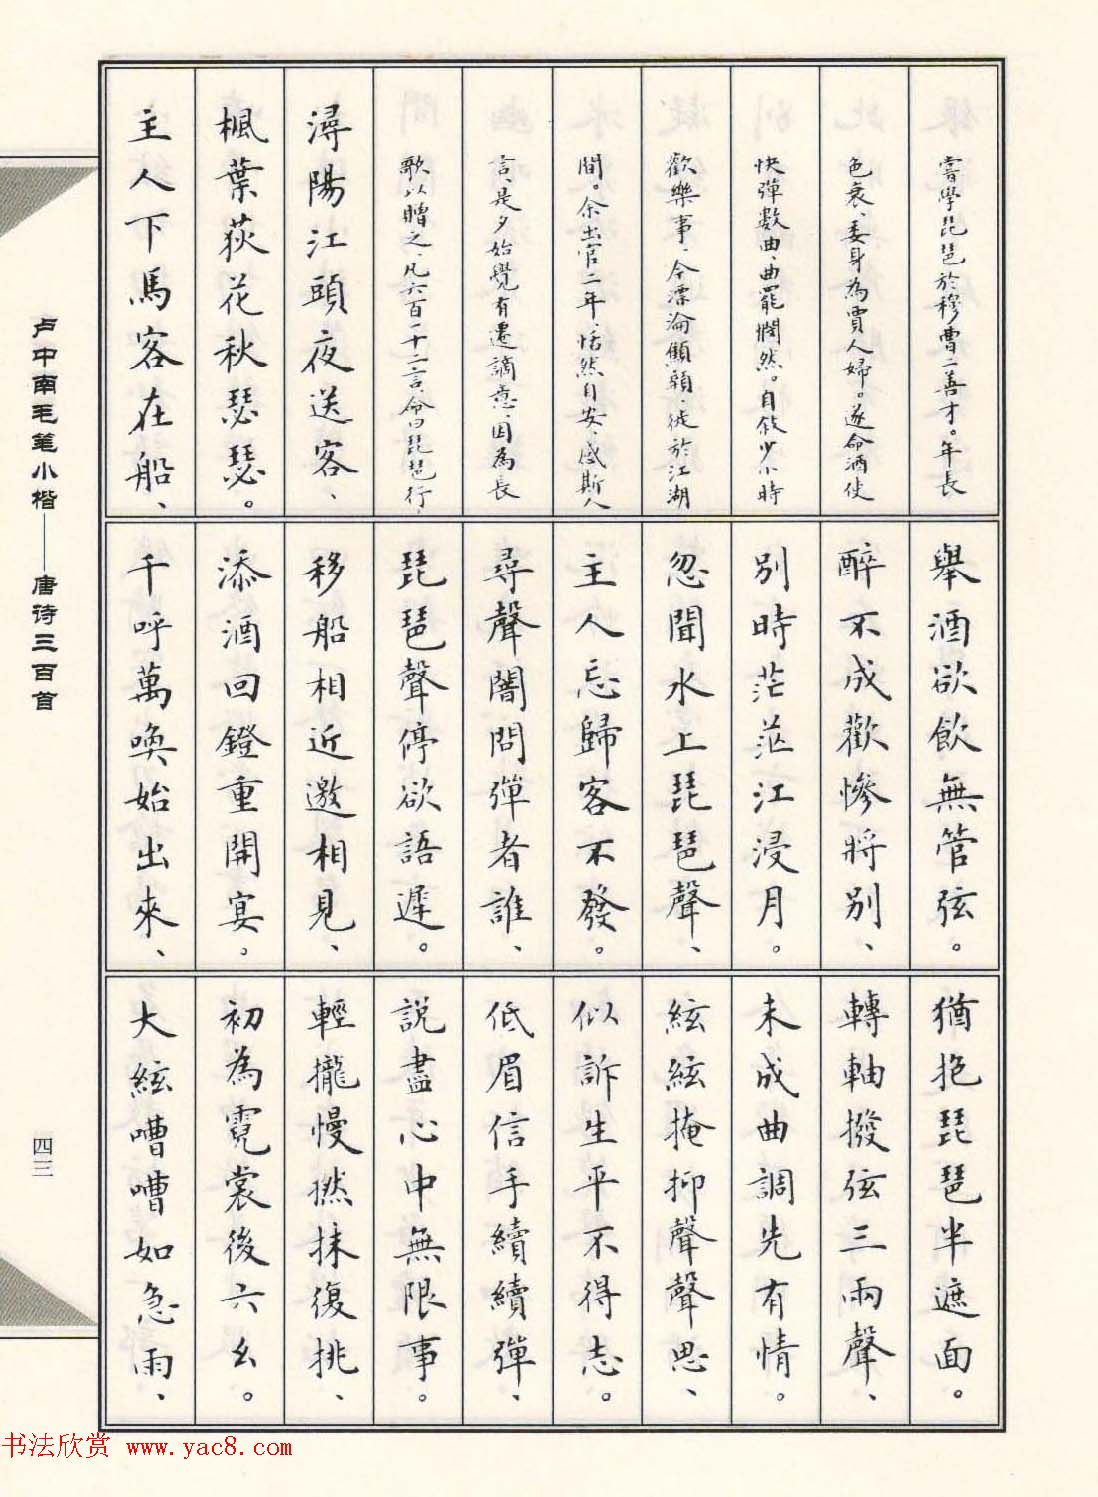 嘗學琵琶於穆曹二善才。年長
色衰、委身為賈人婦。遂命酒使
快彈數曲、曲罷憫然。自敘少小時
歡樂事、今漂淪顦顇、徙於江湖
間。余出官二年、恬然自安、感斯人
言、是夕始覺有遷謫意、因為長
歌以贈之、凡六百一十二言、命曰琵琶行、
潯陽江頭夜送客、
楓葉荻花秋瑟瑟。
主人下馬客在船、
舉酒欲飲無管弦。
醉不成歡慘將別、
別時茫茫江浸月。
忽聞水上琵琶聲、
主人忘歸客不發。
尋聲闇問彈者誰、
琵琶聲停欲語遲。
移船相近邀相見、
添酒回鐙重開宴。
千呼萬喚始出來、
猶抱琵琶半遮面。
轉軸撥弦三兩聲、
未成曲調先有情。
絃絃掩抑聲聲思、
似訴生平不得志。
低眉信手續續彈、
說盡心中無限事。
輕攏慢撚抹復挑、
初為霓裳後六幺。
大絃嘈嘈如急雨、
卢中南毛笔小楷——唐诗三百首
四三
书法欣赏 www.yac8.com